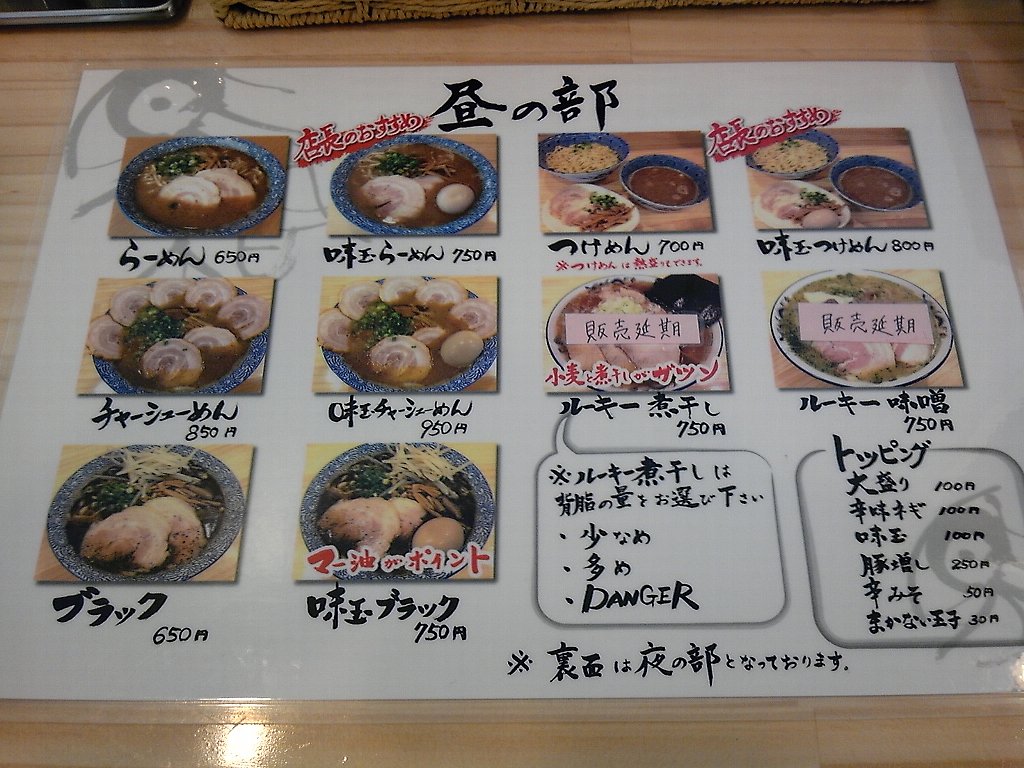 昼の部
店長のおすすめ
店長のおすすめ
らーめん 650円
味玉らーめん 750円
つけめん 700円
※つけめんは熱盛りもできます。
味玉つけめん 800円
チャーシューめん
850円
味玉チャーシューめん
950円
販売延期
小麦と煮干しがガツン
ルーキー煮干し
750円
販売延期
ルーキー味噌
750円
ブラック
650円
マー油がポイント
味玉ブラック
750円
※ルーキー煮干しは
背脂の量をお選び下さい
・少なめ
・多め
・DANGER
トッピング
大盛り 100円
辛味ネギ 100円
味玉 100円
豚増し 250円
辛みそ 50円
まかない玉子 30円
※裏面は夜の部となっております。